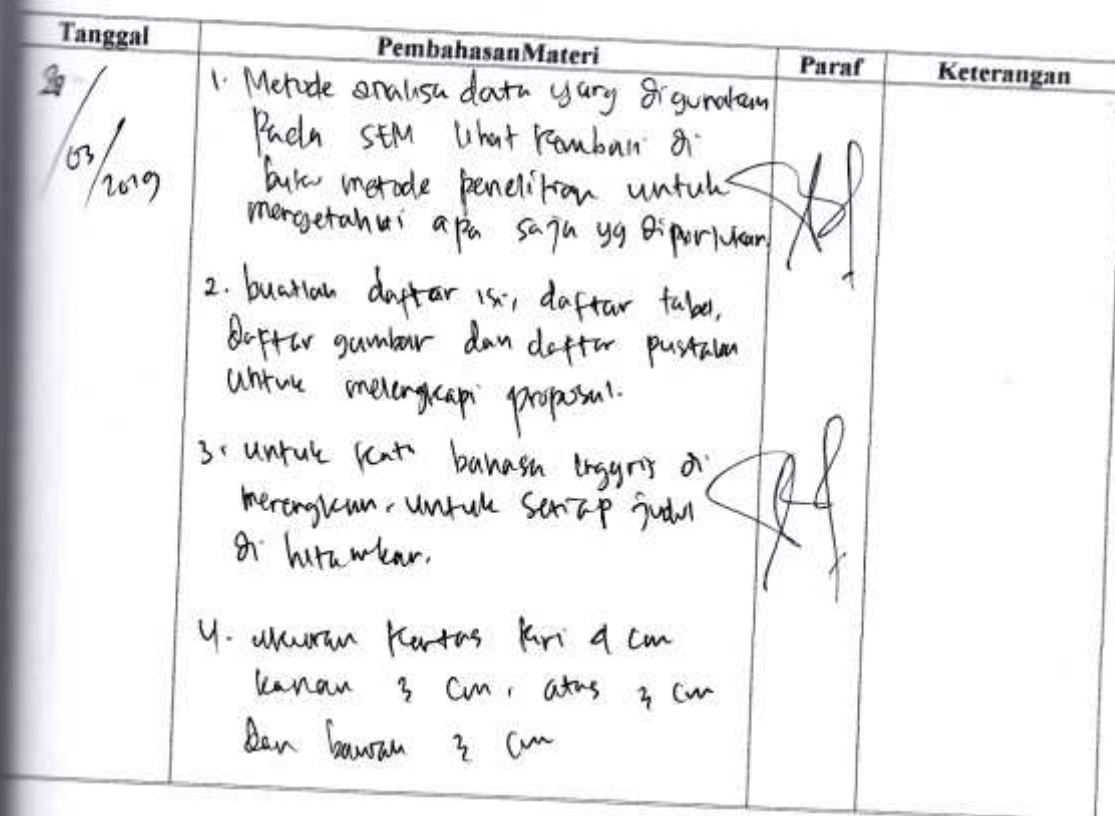 Tanggal PembahasanMateri Paraf Keterangan
/03/2019
1. Metode analisa data yang digunakan
pada SEM lihat kembali di
buku metode penelitian untuk
mengetahui apa saja yg diperlukan.
2. buatlah daftar isi, daftar tabel,
daftar gambar dan daftar pustaka
untuk melengkapi proposal.
3. untuk kata bahasa Inggris di
merengkan, untuk setiap judul
di hitamkan.
4. ukuran kertas kiri 4 cm
kanan 3 cm, atas 3 cm
Dan bawah 3 cm